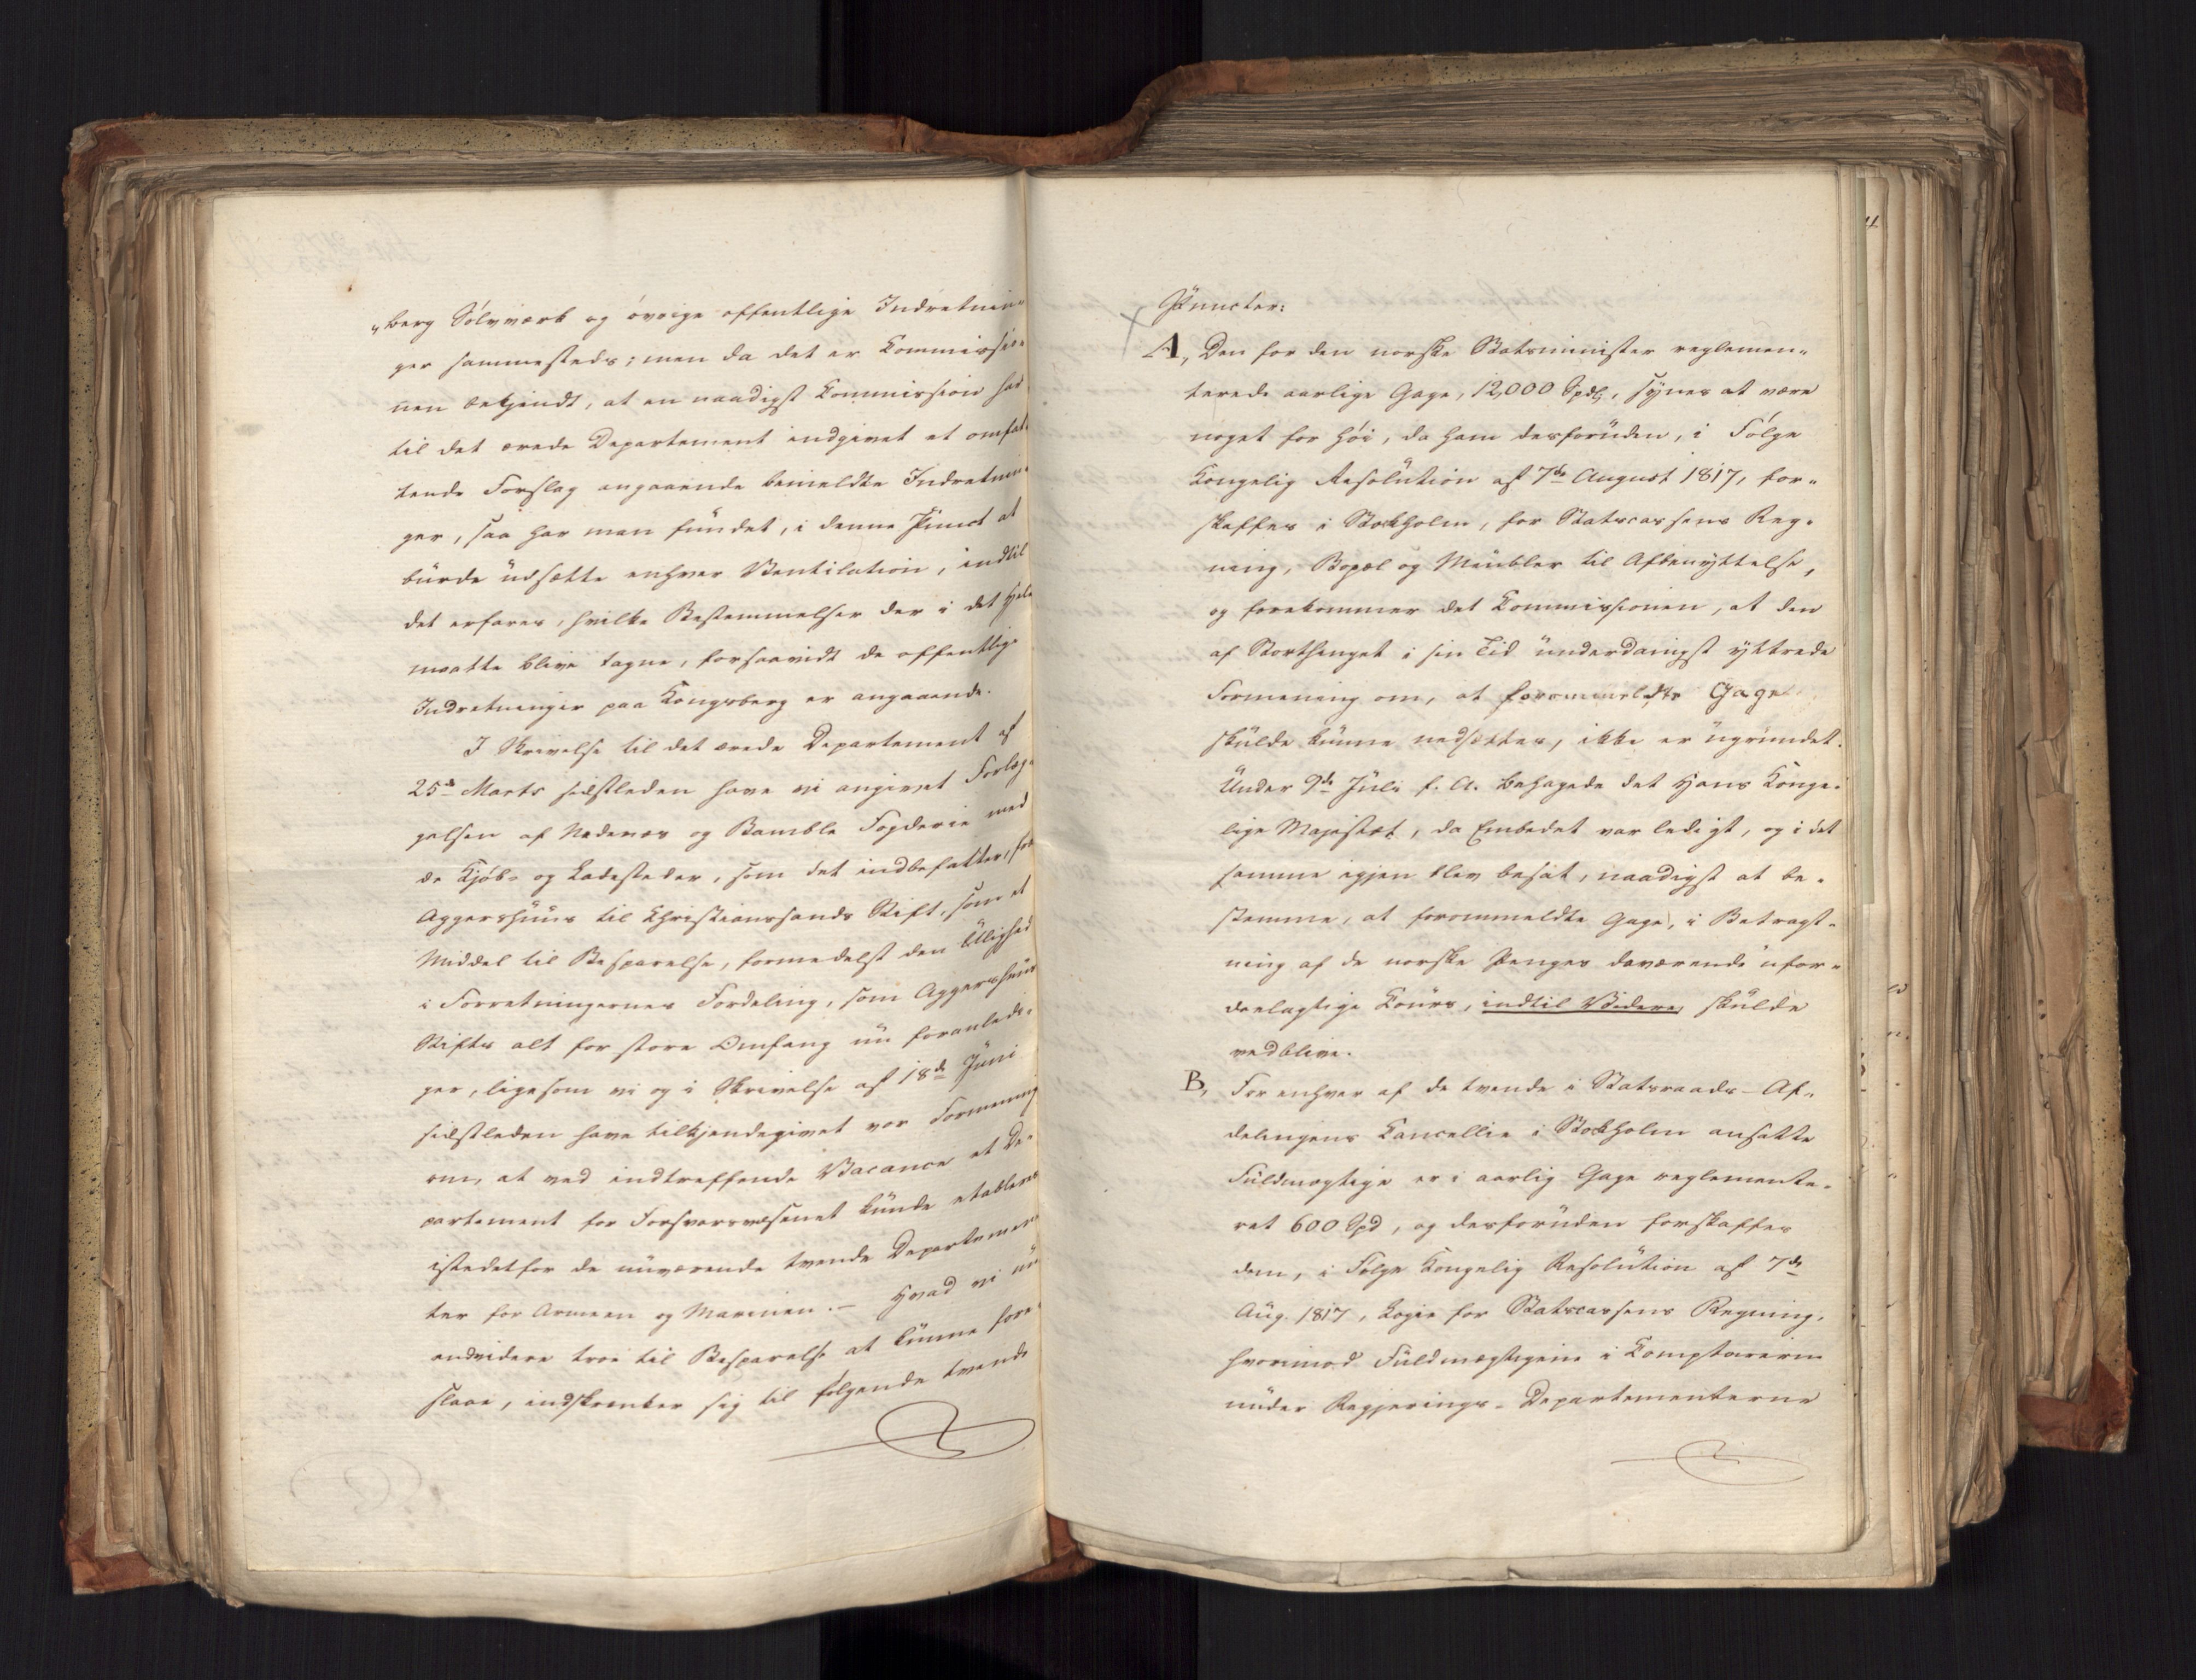 „berg Sølvværk og øvrige offentlige Indretnin„
ger sammesteds; men da det er Commissio„
nen bekjendt, at en naadigst Commission har
til det ærede Departement indgivet et omfat„
tende Forslag angaaende bemeldte Indretnin„
ger, saa har man fundet, i denne Punct at
burde udsætte enhver Ventilation, indtil
det erfares, hvilke Bestemmelser der i det Hele
maatte blive tagne, forsaavidt de offentlige
Indretninger paa Kongsberg er angaaende.
I Skrivelse til det ærede Departement af
25de Marts sidstleden have vi angivet Forlæg„
gelsen af Nedenæs og Bamble Fogderie med
de Kjøb- og Ladesteder, som det indbefatter, fra
Aggershuus til Christianssands Stift, som et
Middel til Besparelse, formedelst den Ulighed
i Forretningernes Fordeling, som Aggershuus
Stifts alt for store Omfang nu foranledi„
ger, ligesom vi og i Skrivelse af 18de Juni
sidstleden have tilkjendegivet vor Formening
om, at ved indtreffende Vacance et De„
partement for Forsvarsvæsenet kunde etableres
istedetfor de nuværende tvende Departemen„
ter for Armeen og Marinen. – Hvad vi nu
endvidere troe til Besparelse at kunne fore„
slaae, indskrenker sig til følgende tvende
Puncter:
A, Den for den norske Statsminister reglemen„
terede aarlige Gage, 12,000 Spdlr, synes at være
noget for høi, da ham desforuden, i Følge
Kongelig Resolution af 7de August 1817, for„
skaffes i Stockholm, for Statscassens Reg„
ning, Bopæl og Meubler til Afbenyttelse,
og forekommer det Commissionen, at den
af Storthinget i sin Tid underdanigst yttrede
Formening om, at forommeldte Gage
skulde kunne nedsættes, ikke er ugrundet.
Under 9de Juli f. A. behagede det Hans Konge„
lige Majestæt, da Embedet var ledigt, og i det
samme igjen blev besat, naadigst at be„
stemme, at forommeldte Gage, i Betragt„
ning af de norske Penges daværende ufor„
deelagtige Cours, indtil Videre skulde
vedblive.
B, For enhver af de tvende i Statsraads-Af„
delingens Cancellie i Stockholm ansatte
Fuldmægtige er i aarlig Gage reglemente„
ret 600 Spd, og desforuden forskaffes
dem, i Følge Kongelig Resolution af 7de
Aug. 1817, Logie for Statscassens Regning,
hvorimod Fuldmægtigene i Comptoirerne
under Regjerings-Departementerne